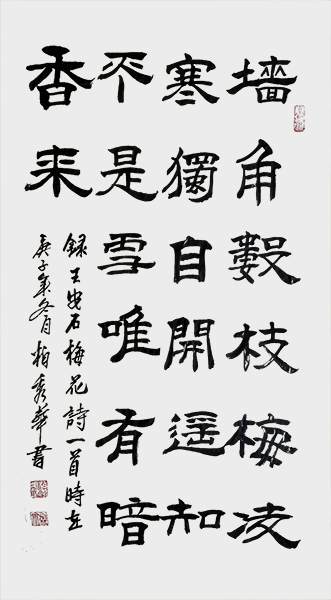 墙角數枝梅凌
寒獨自開遥知
不是雪唯有暗
香来
録王安石梅花詩一首時在
庚子年冬月柏秀華書